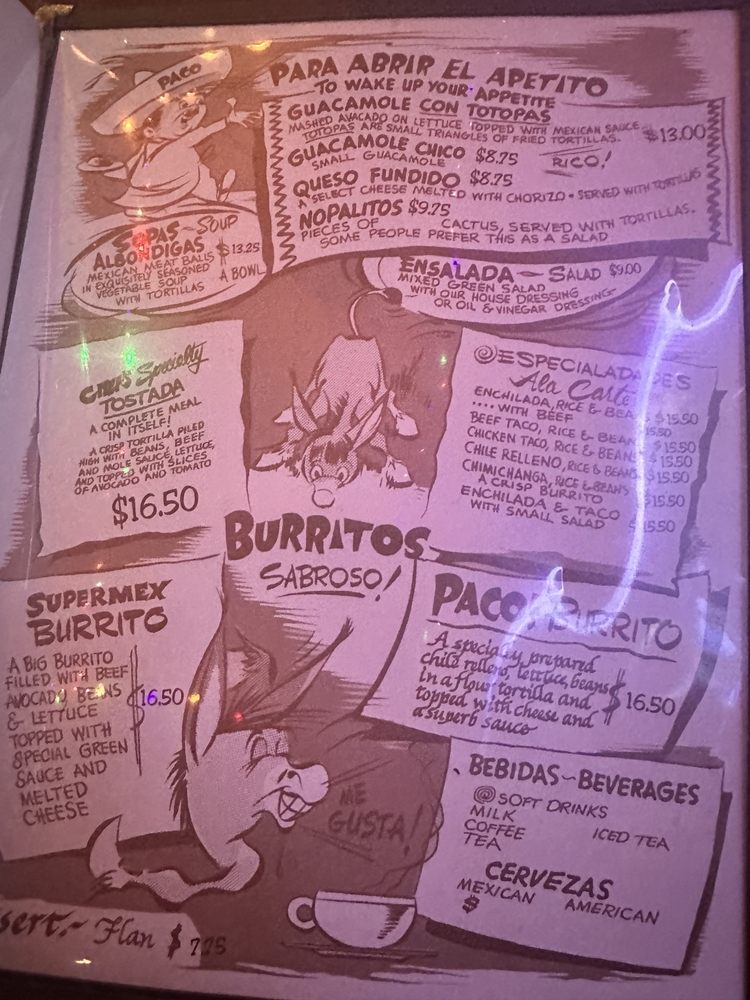 PACO
PARA ABRIR EL APETITO
TO WAKE UP YOUR APPETITE
GUACAMOLE CON TOTOPAS
MASHED AVACADO ON LETTUCE TOPPED WITH MEXICAN SAUCE
TOTOPAS ARE SMALL TRIANGLES OF FRIED TORTILLAS. $13.00
GUACAMOLE CHICO $8.75
SMALL GUACAMOLE RICO!
QUESO FUNDIDO $8.75
A SELECT CHEESE MELTED WITH CHORIZO - SERVED WITH TORTILLAS
NOPALITOS $9.75
PIECES OF CACTUS, SERVED WITH TORTILLAS.
SOME PEOPLE PREFER THIS AS A SALAD
SOPAS - SOUP
ALBONDIGAS $13.25
MEXICAN MEAT BALLS A BOWL
IN EXQUISITELY SEASONED
VEGETABLE SOUP
WITH TORTILLAS
ENSALADA - SALAD $9.00
MIXED GREEN SALAD
WITH OUR HOUSE DRESSING
OR OIL & VINEGAR DRESSING
Specialty
TOSTADA
A COMPLETE MEAL
IN ITSELF!
A CRISP TORTILLA PILED
HIGH WITH BEANS, BEEF
AND MOLE SAUCE, LETTUCE,
AND TOPPED WITH SLICES
OF AVOCADO AND TOMATO
$16.50
ESPECIALADADES
Ala Carte
ENCHILADA, RICE & BEANS $15.50
....WITH BEEF 15.50
BEEF TACO, RICE & BEANS $15.50
CHICKEN TACO, RICE & BEANS $15.50
CHILE RELLENO, RICE & BEANS $15.50
CHIMICHANGA, RICE & BEANS
A CRISP BURRITO $15.50
ENCHILADA & TACO
WITH SMALL SALAD $15.50
BURRITOS
SABROSO!
SUPERMEX
BURRITO
A BIG BURRITO
FILLED WITH BEEF
AVOCADO BEANS $16.50
& LETTUCE
TOPPED WITH
SPECIAL GREEN
SAUCE AND
MELTED
CHEESE
PACO BURRITO
A specialty prepared
chile relleno, lettuce, beans
in a flour tortilla and $16.50
topped with cheese and
a superb sauce
ME
GUSTA!
BEBIDAS - BEVERAGES
SOFT DRINKS
MILK
COFFEE ICED TEA
TEA
CERVEZAS
MEXICAN AMERICAN
$
sert.- Flan $ 7.25